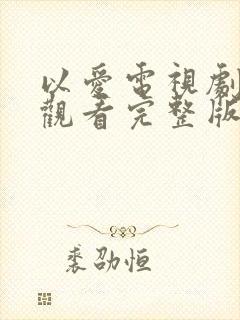 以愛電視劇
觀看完整版
裘劭恒